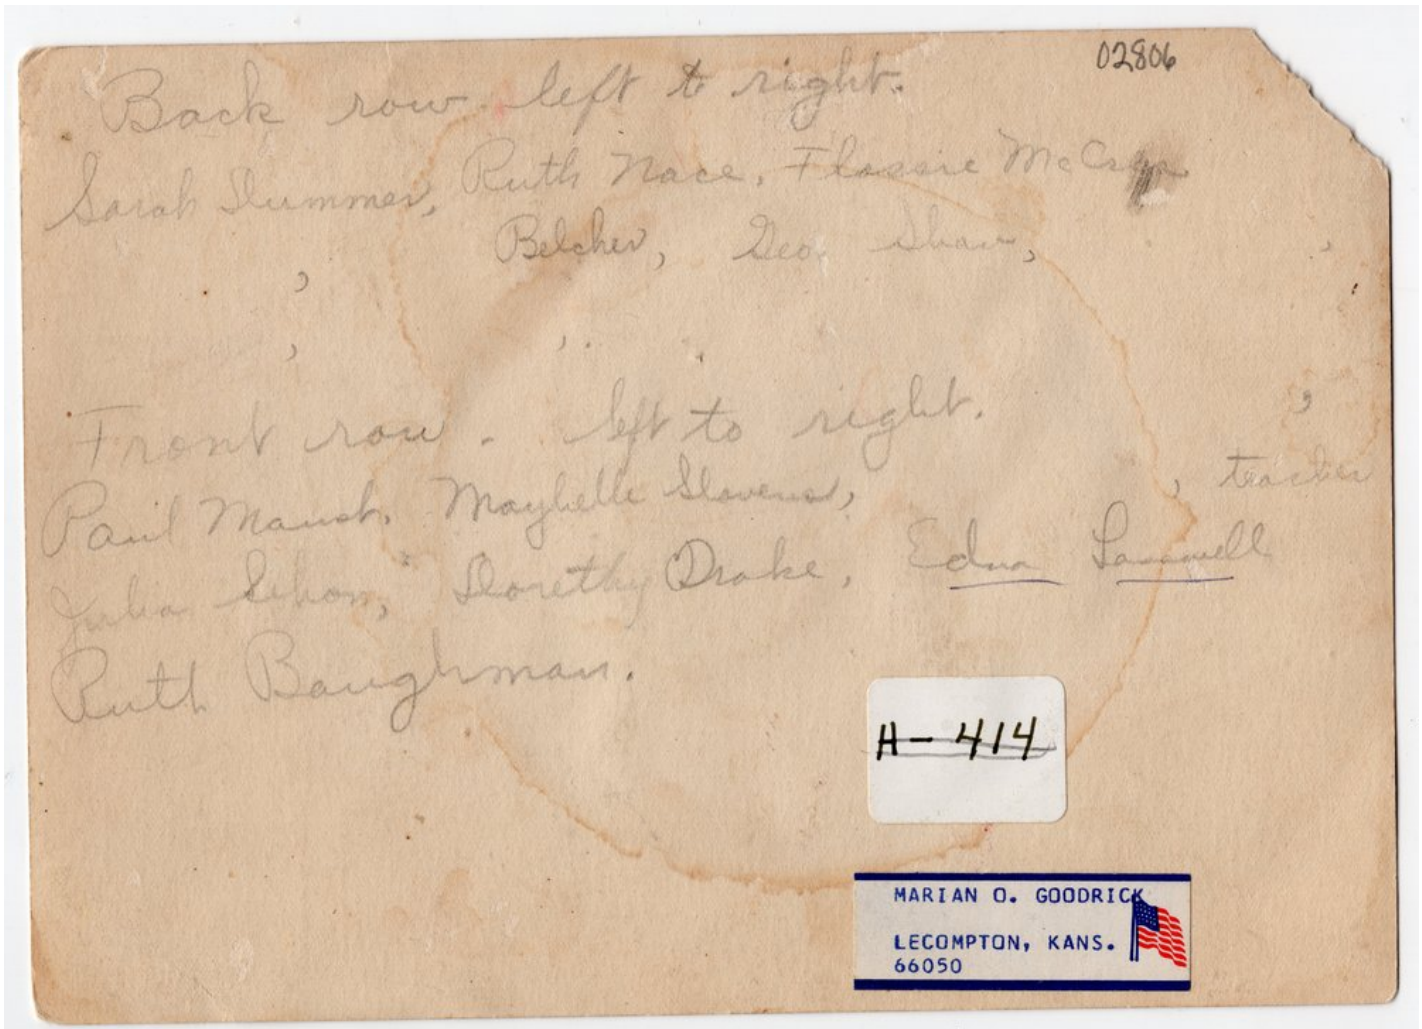 02806
Back row left to right.
Sarah Dummer, Ruth Nace, Flossie
Belcher, Geo. Shaw, ,
,
, , .
Front row. left to right. ,
Paul Maush, Maybelle Slavens, , teacher
Julia Schon, Dorethy Drake, Edna
Ruth Baughman.
H-414
MARIAN O. GOODRICK
LECOMPTON, KANS.
66050